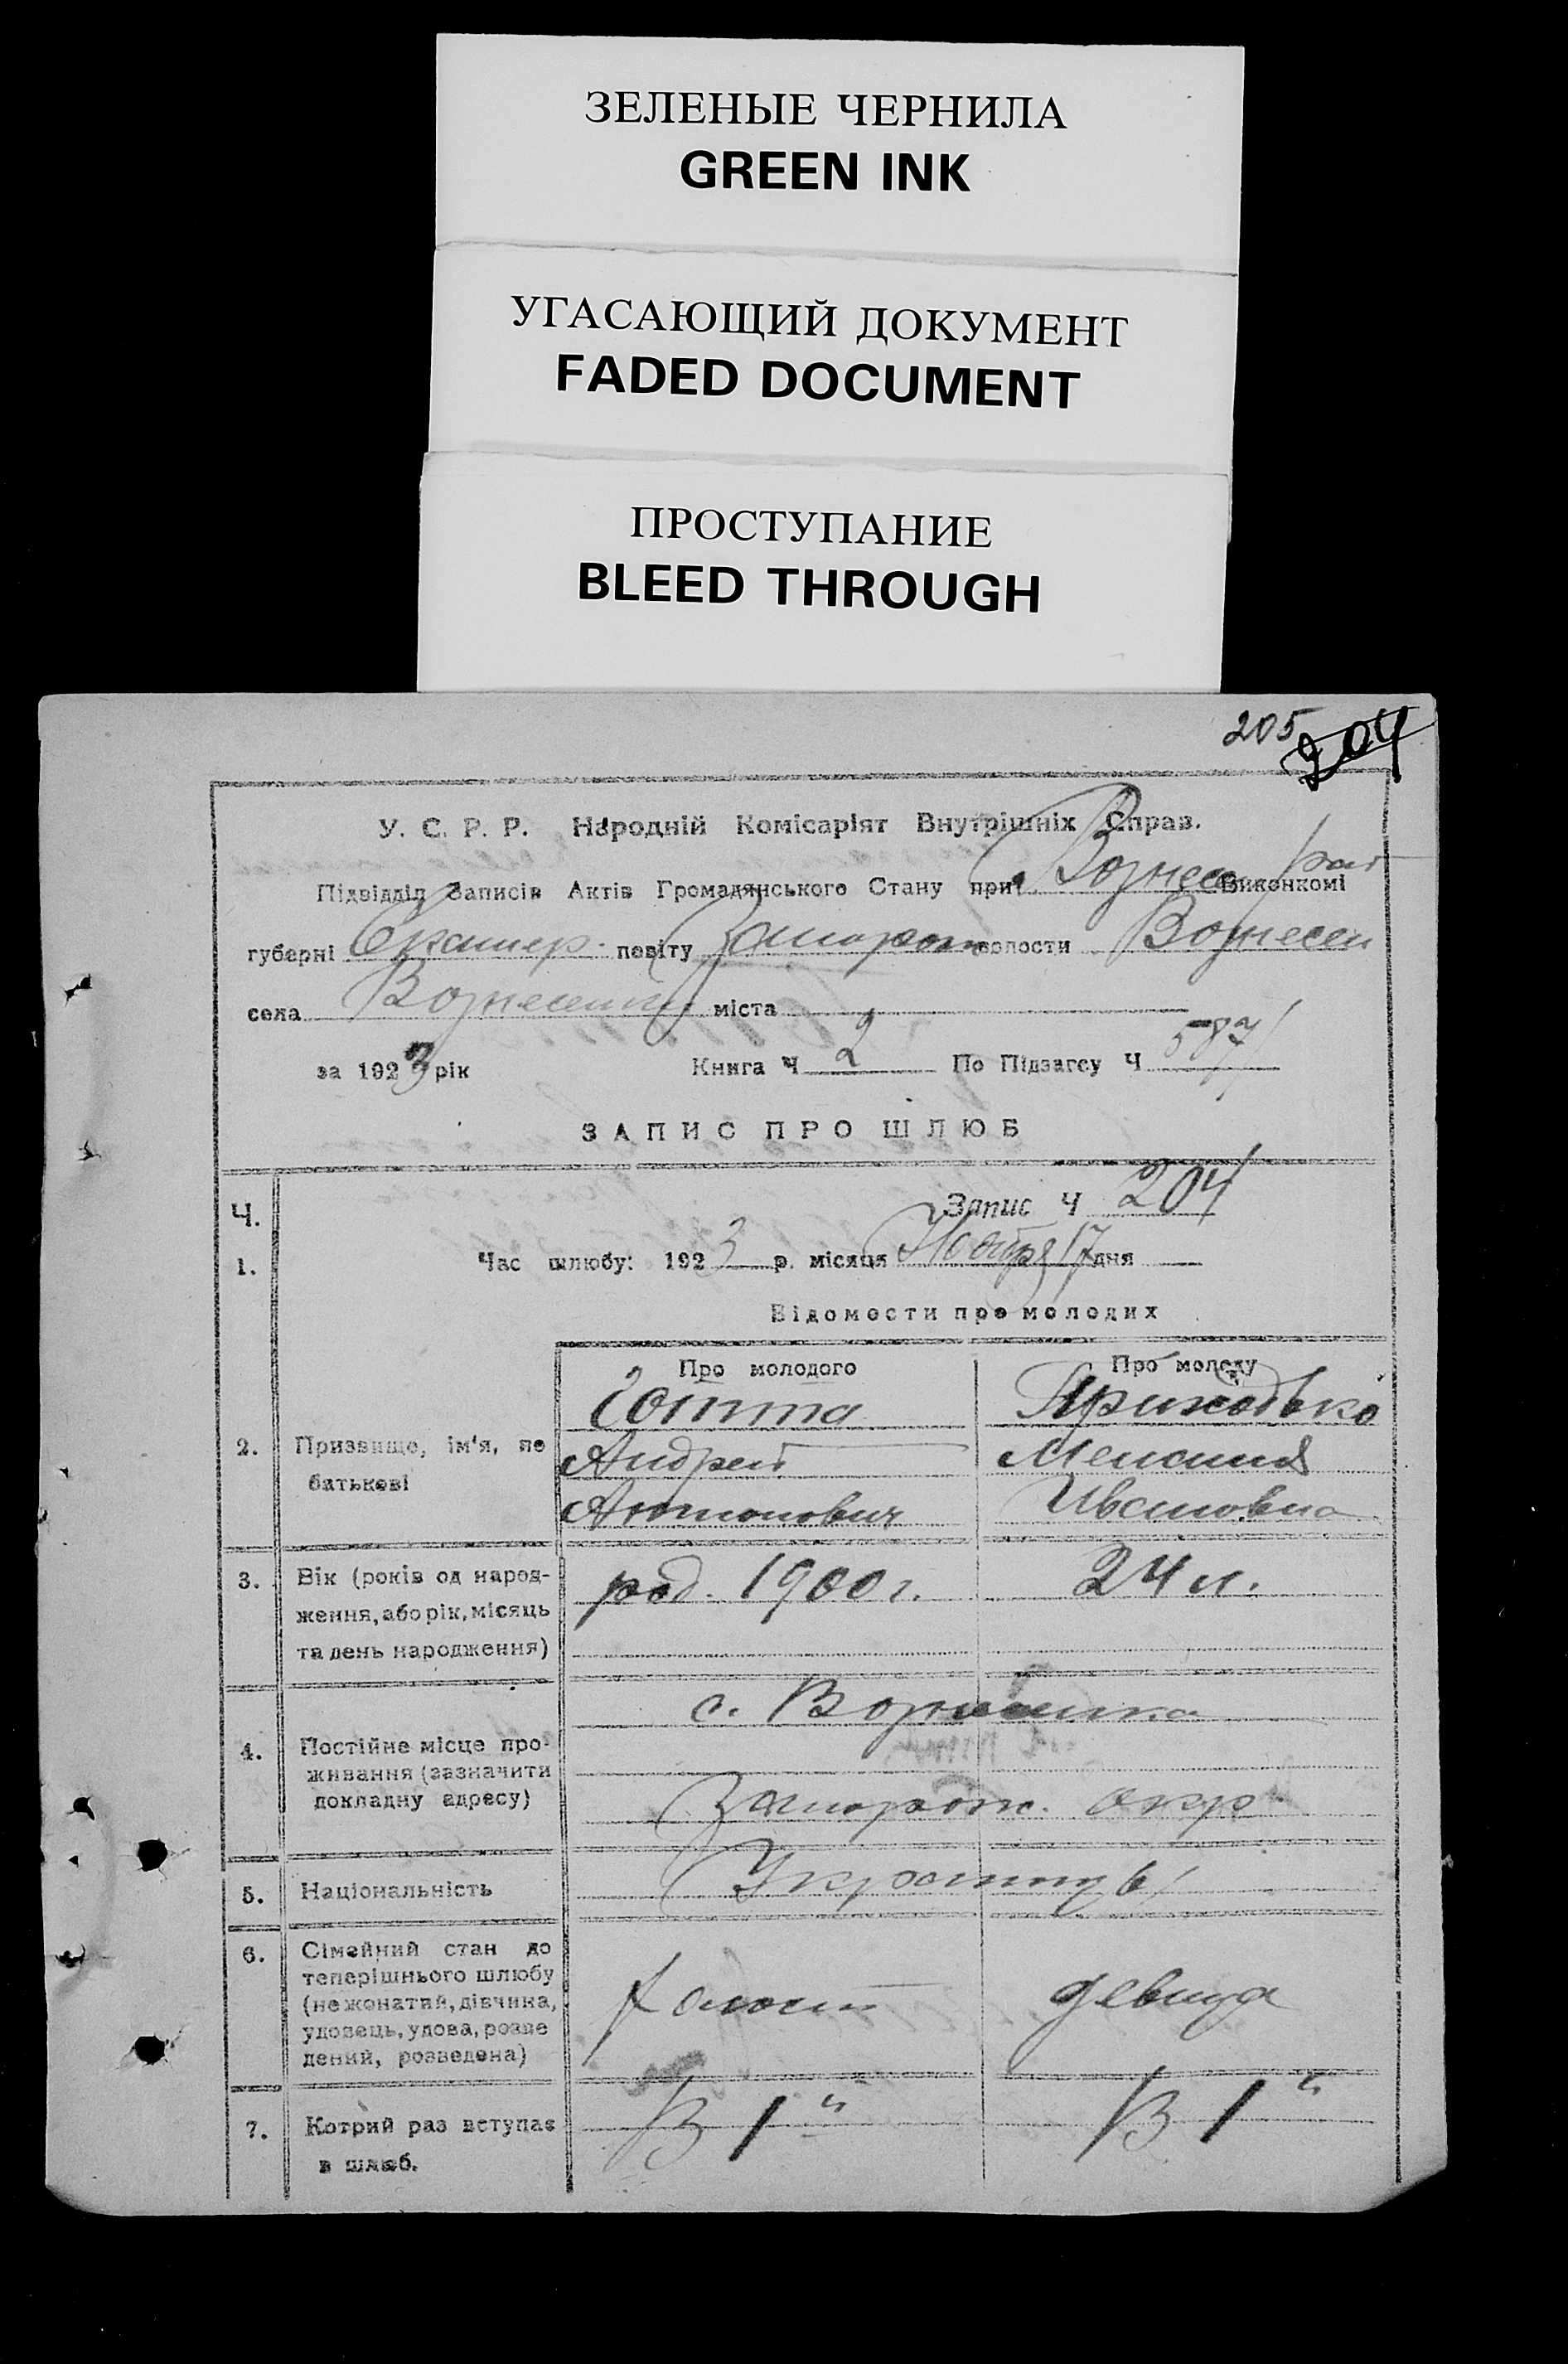 ЗЕЛЕНЫЕ ЧЕРНИЛА
GREEN INK
УГАСАЮЩИЙ ДОКУМЕНТ
FADED DOCUMENT
ПРОСТУПАНИЕ
BLEED THROUGH
205 204
У. С. Р. Р. Народній Комісаріят Внутрішніх Справ.
Підвідділ Записів Актів Громадянського Стану при Вознесен. рай Виконкомі
губерні Екатер. повіту Запорож волости Вознесен
села Вознесенки міста
за 1923 рік Книга Ч 2 По Підзагсу Ч 587
ЗАПИС ПРО ШЛЮБ
Ч. Запис Ч 204
1. Час шлюбу: 1923 р. місяця Ноября 17 дня
Відомости про молодих
Про молодого Про молоду
Приходько
2. Призвище, ім'я, по Андрей
батькові Антонович Ивановна
3. Вік (років од народ- род. 1900 г. 24 л.
ження, або рік, місяць
та день народження)
с. Вознесенка
4. Постійне місце про-
живання (зазначити
докладну адресу) Запорож. окр.
5. Національність Украинцы
6. Сімейний стан до
теперішнього шлюбу
(нежонатий, дівчина, холост девица
удовець, удова, розве
дений, розведена)
7. Котрий раз вступає В 1й В 1й
в шлюб.